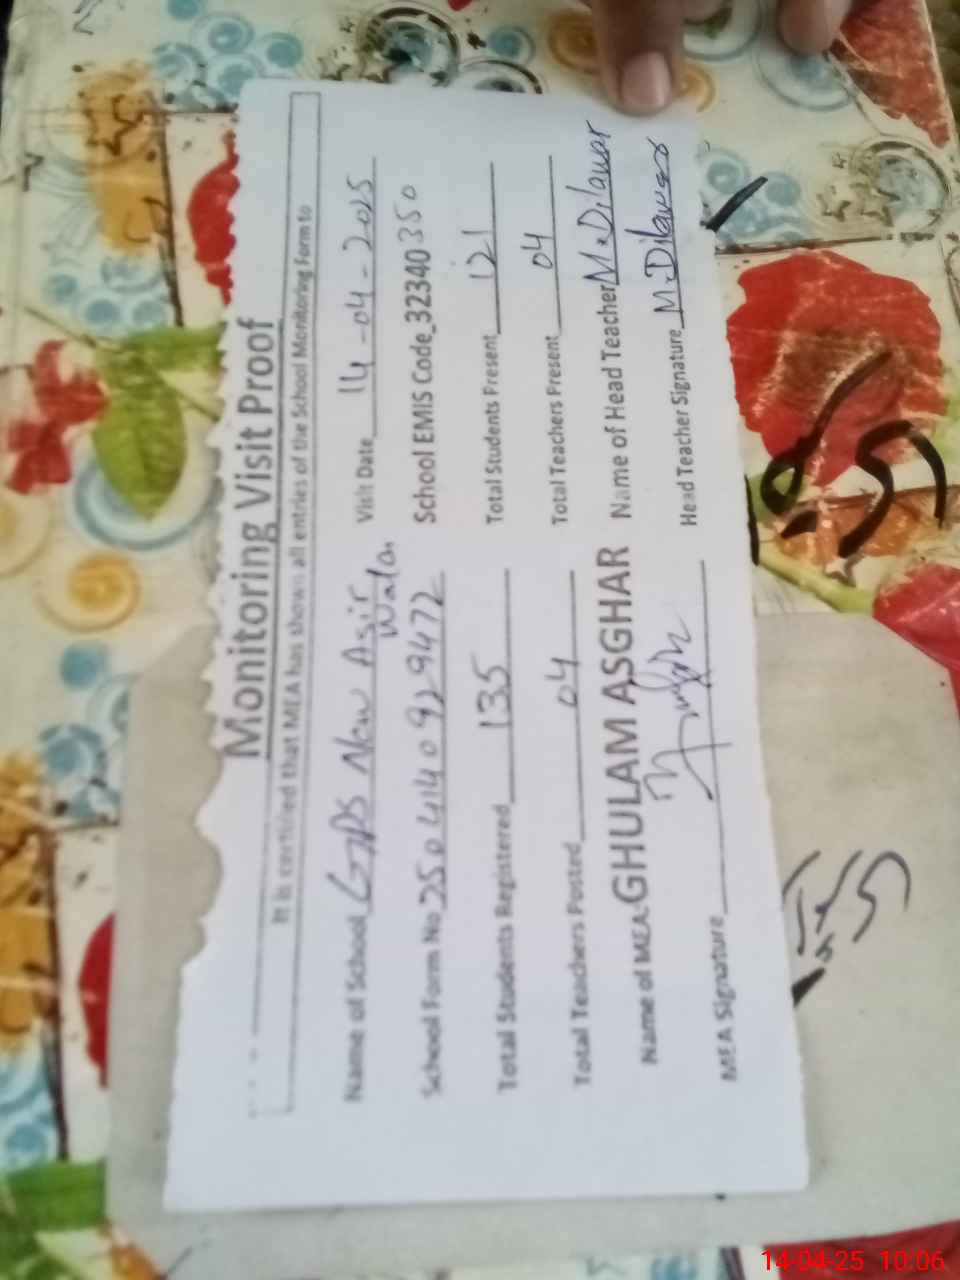 Monitoring Visit Proof
It is certified that MEA has shown all entries of the School Monitoring Form to
Name of School GPS New Asir Wala Visit Date 14-04-2025
School Form No 2504140929472 School EMIS Code_32340350
Total Students Registered 135 Total Students Present 121
Total Teachers Posted 04 Total Teachers Present 04
Name of MEA GHULAM ASGHAR Name of Head Teacher M. Dilawar
MEA Signature Head Teacher Signature M. Dilawar
14-04-25 10:06